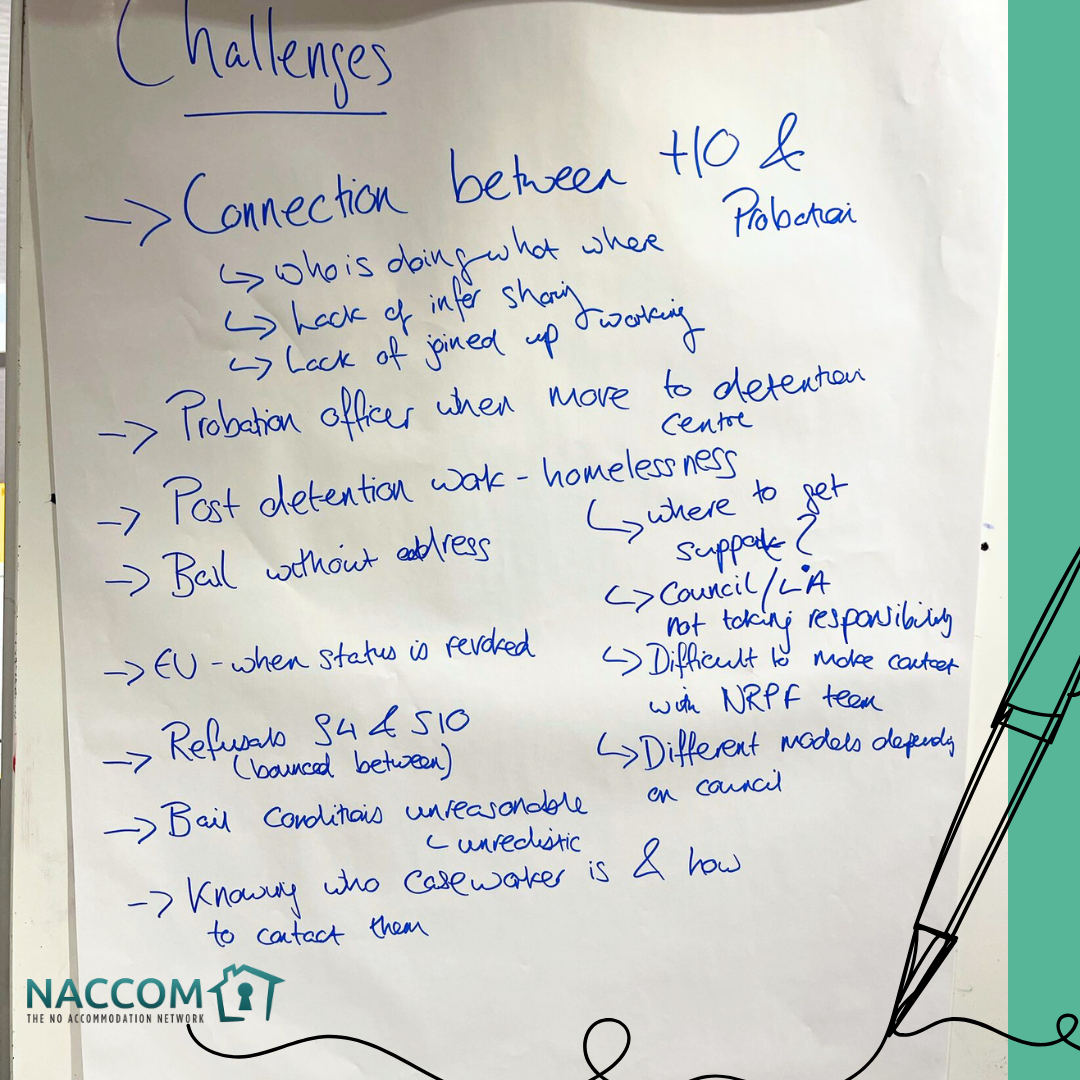 Challenges
→ Connection between HO &
Probation
↳ who is doing what where
↳ Lack of infor sharing
↳ Lack of joined up working
→ Probation officer when move to detention
centre
→ Post detention work - homelessness
↳ where to get
support?
↳ Council/LA
not taking responsibility
↳ Difficult to make contact
with NRPF team
↳ Different models depending
on council
→ Bail without address
→ EU - when status is revoked
→ Refusals S4 & S10
(bounced between)
→ Bail conditions unreasonable
↳ unrealistic
→ Knowing who caseworker is & how
to contact them
NACCOM
THE NO ACCOMMODATION NETWORK